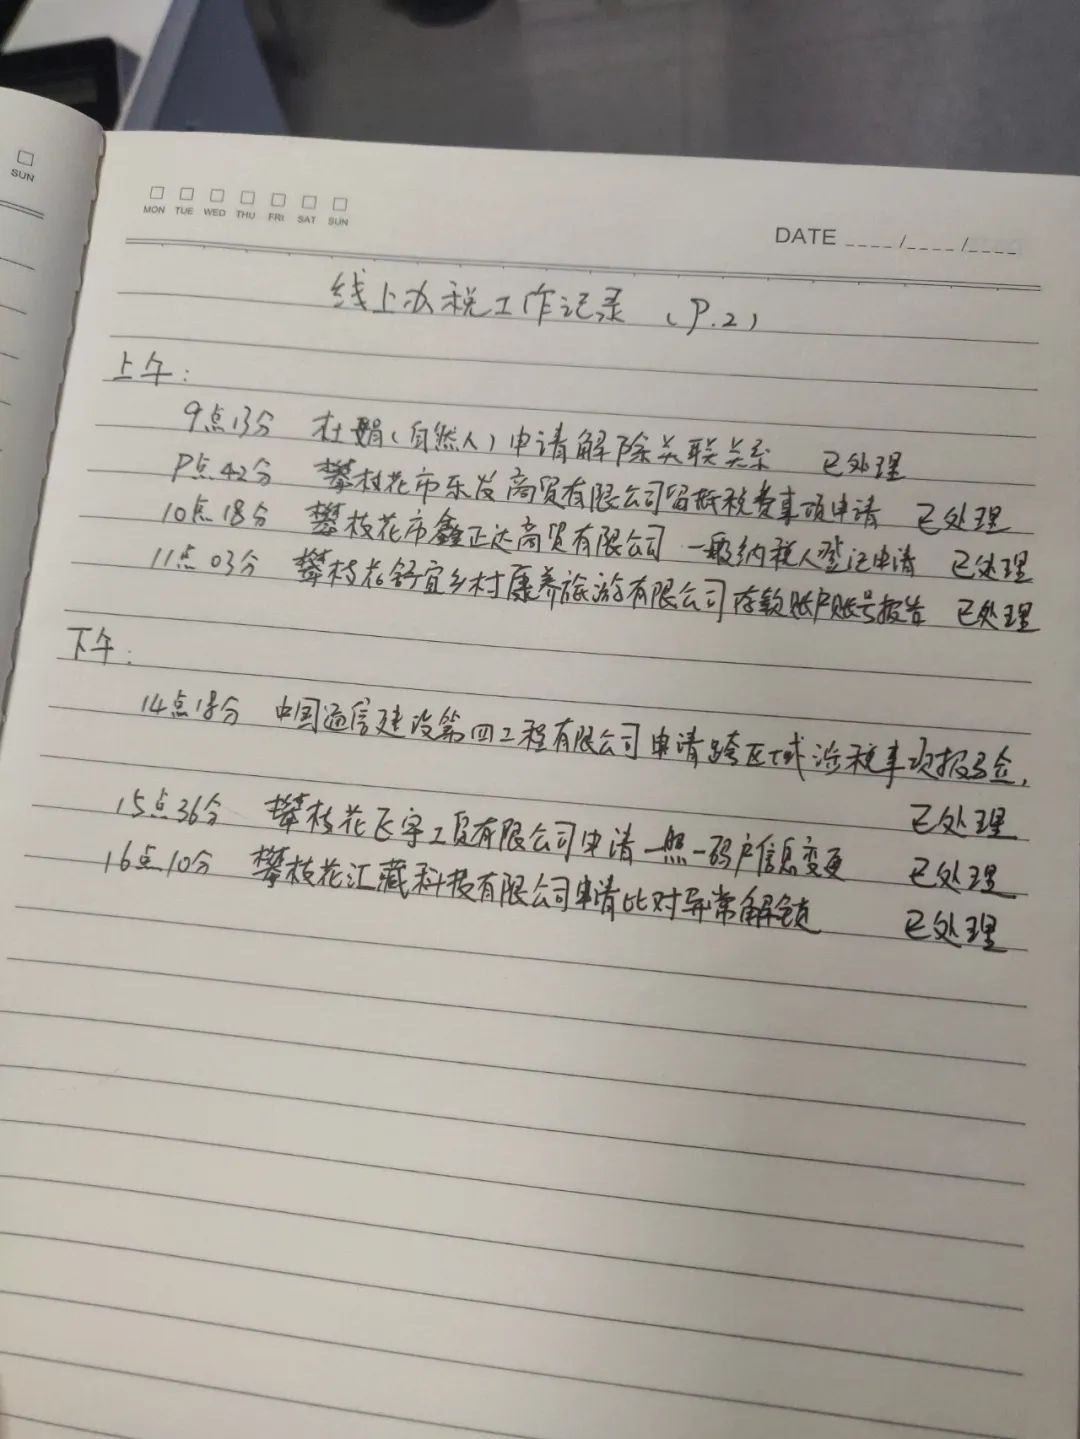 SUN
MON TUE WED THU FRI SAT SUN
DATE ____/____/____
线上办税工作记录 (P.2)
上午:
9点13分 杜娟(自然人)申请解除关联关系 已处理
9点42分 攀枝花市乐发商贸有限公司留抵税费事项申请 已处理
10点18分 攀枝花市鑫正达商贸有限公司 一般纳税人登记申请 已处理
11点03分 攀枝花舒宜乡村康养旅游有限公司存款账户账号报告 已处理
下午:
14点18分 中国通信建设第四工程有限公司申请跨区域涉税事项报验,
已处理
15点36分 攀枝花飞宇工贸有限公司申请一照一码户信息变更 已处理
16点10分 攀枝花汇藏科技有限公司申请比对异常解锁 已处理